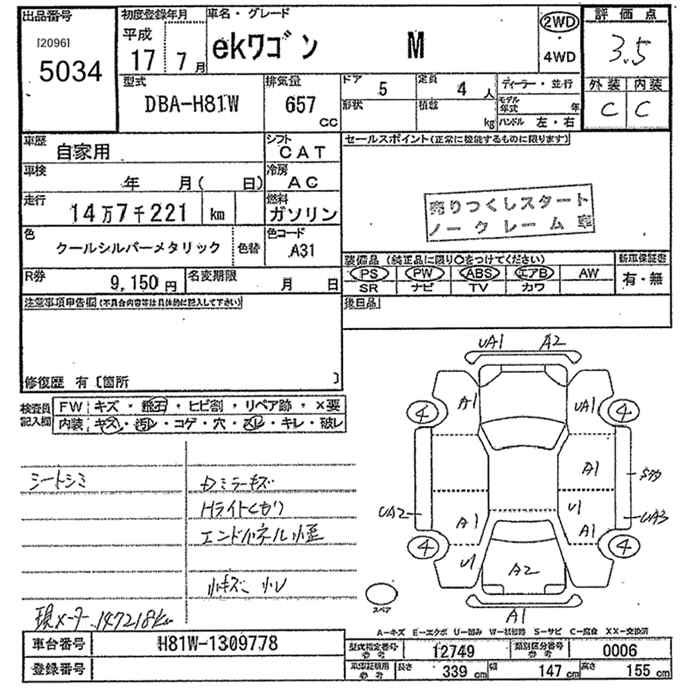 出品番号
[2096]
5034
初度登録年月
平成
17 7月
車名・グレード
ekワゴン M
2WD
4WD
評価点
3.5
外装 内装
C C
型式
DBA-H81W
排気量
657
cc
ドア 5
定員 4人
形状
積載 kg
ディーラー・並行
モデル年式 年
ハンドル 左・右
車歴
自家用
シフト
CAT
セールスポイント(正常に機能するものに限ります)
車検
年 月( 日)
冷房
AC
売りつくしスタート
ノークレーム
走行
14万7千221 km
燃料
ガソリン
色
クールシルバーメタリック
色替
色コード
A31
装備品(純正品に限り○をつけてください)
PS PW ABS エアB AW
SR ナビ TV カワ
新車保証書
有・無
R券
9,150円
名変期限
月 日
後日品
注意事項申告欄(不具合内容等は具体的に記入して下さい)
修復歴 有〔箇所 〕
検査員記入欄
FW キズ・飛石・ヒビ割・リペア跡・×要
内装 キズ・汚レ・コゲ・穴・スレ・キレ・破レ
シートシミ
Dミラーキズ
Hライトくもり
エンドパネル小歪
小キズ 小凹
現メーター147218km
UA1 A2
A1 UA1
4 4
A1
UA2 UA3
A1 U1 A1
4 4
U1
A2
A1
スペア
A-キズ E-エクボ U-凹み W-補修跡 S-サビ C-腐食 XX-交換済
車台番号
H81W-1309778
型式指定番号 参考
12749
類別区分番号 参考
0006
登録番号
車庫証明用 参考
長さ 339cm
幅 147cm
高さ 155cm